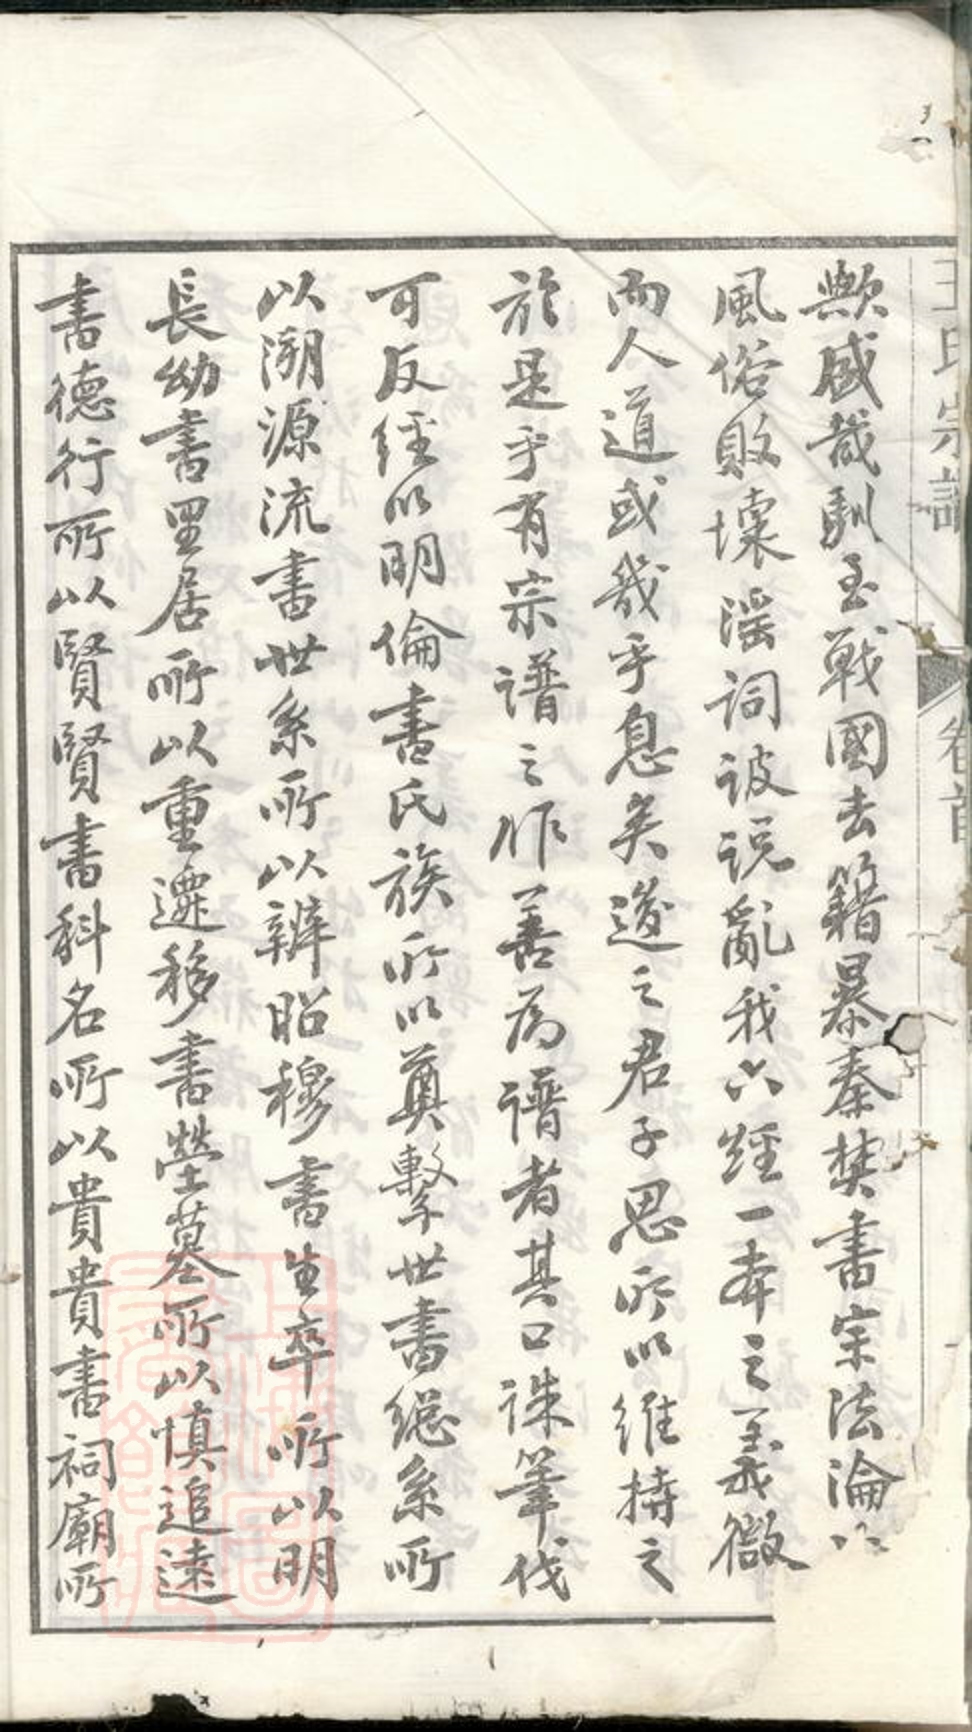 王氏宗譜
卷首
歟盛哉馴至戰國去籍暴秦焚書宗法淪
風俗敗壞淫詞詖說亂我六經一本之義微
而人道或幾乎息矣後之君子思所以維持之
於是乎有宗譜之作善為譜者其口誅筆伐
可反經以明倫書氏族所以奠繫世書總系所
以溯源流書世系所以辨昭穆書生卒所以明
長幼書里居所以重遷移書塋墓所以慎追遠
書德行所以賢賢書科名所以貴貴書祠廟所